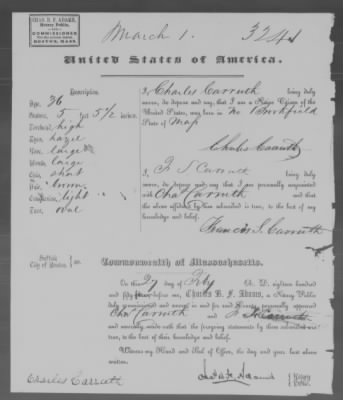 CHAS. B. F. ADAMS,
Notary Public,
COMMISSIONER
BOSTON, MASS.
March 1. 3241
United States of America.
I, Charles Carruth being duly
sworn, do depose and say, that I am a Native Citizen of the
United States, was born in No Brookfield
State of Mass
Charles Carruth
Description.
Age, 36
Stature, 5 5 1/2 inches.
Forehead, high
Eyes, hazel
Nose, large
Mouth, large
Chin, short
Hair, brown
Complexion, light
Face, oval
I, F S Carruth being duly
sworn, do depose and say, that I am personally acquainted
with Chas Carruth and that
the above affidavit by him subscribed is true, to the best of my
knowledge and belief.
Francis S. Carruth
Commonwealth of Massachusetts.
Suffolk
City of Boston } ss.
On this 27 day of Feby A. D. eighteen hundred
and fifty before me, Charles B. F. Adams, a Notary Public,
duly commissioned and sworn, in and for said County, personally appeared
Chas Carruth and F S Carruth
and severally made oath that the foregoing statements by them subscribed are
true, to the best of their knowledge and belief.
Witness my Hand and Seal of Office, the day and year last above
written.
Notary
Public.
Charles Carruth